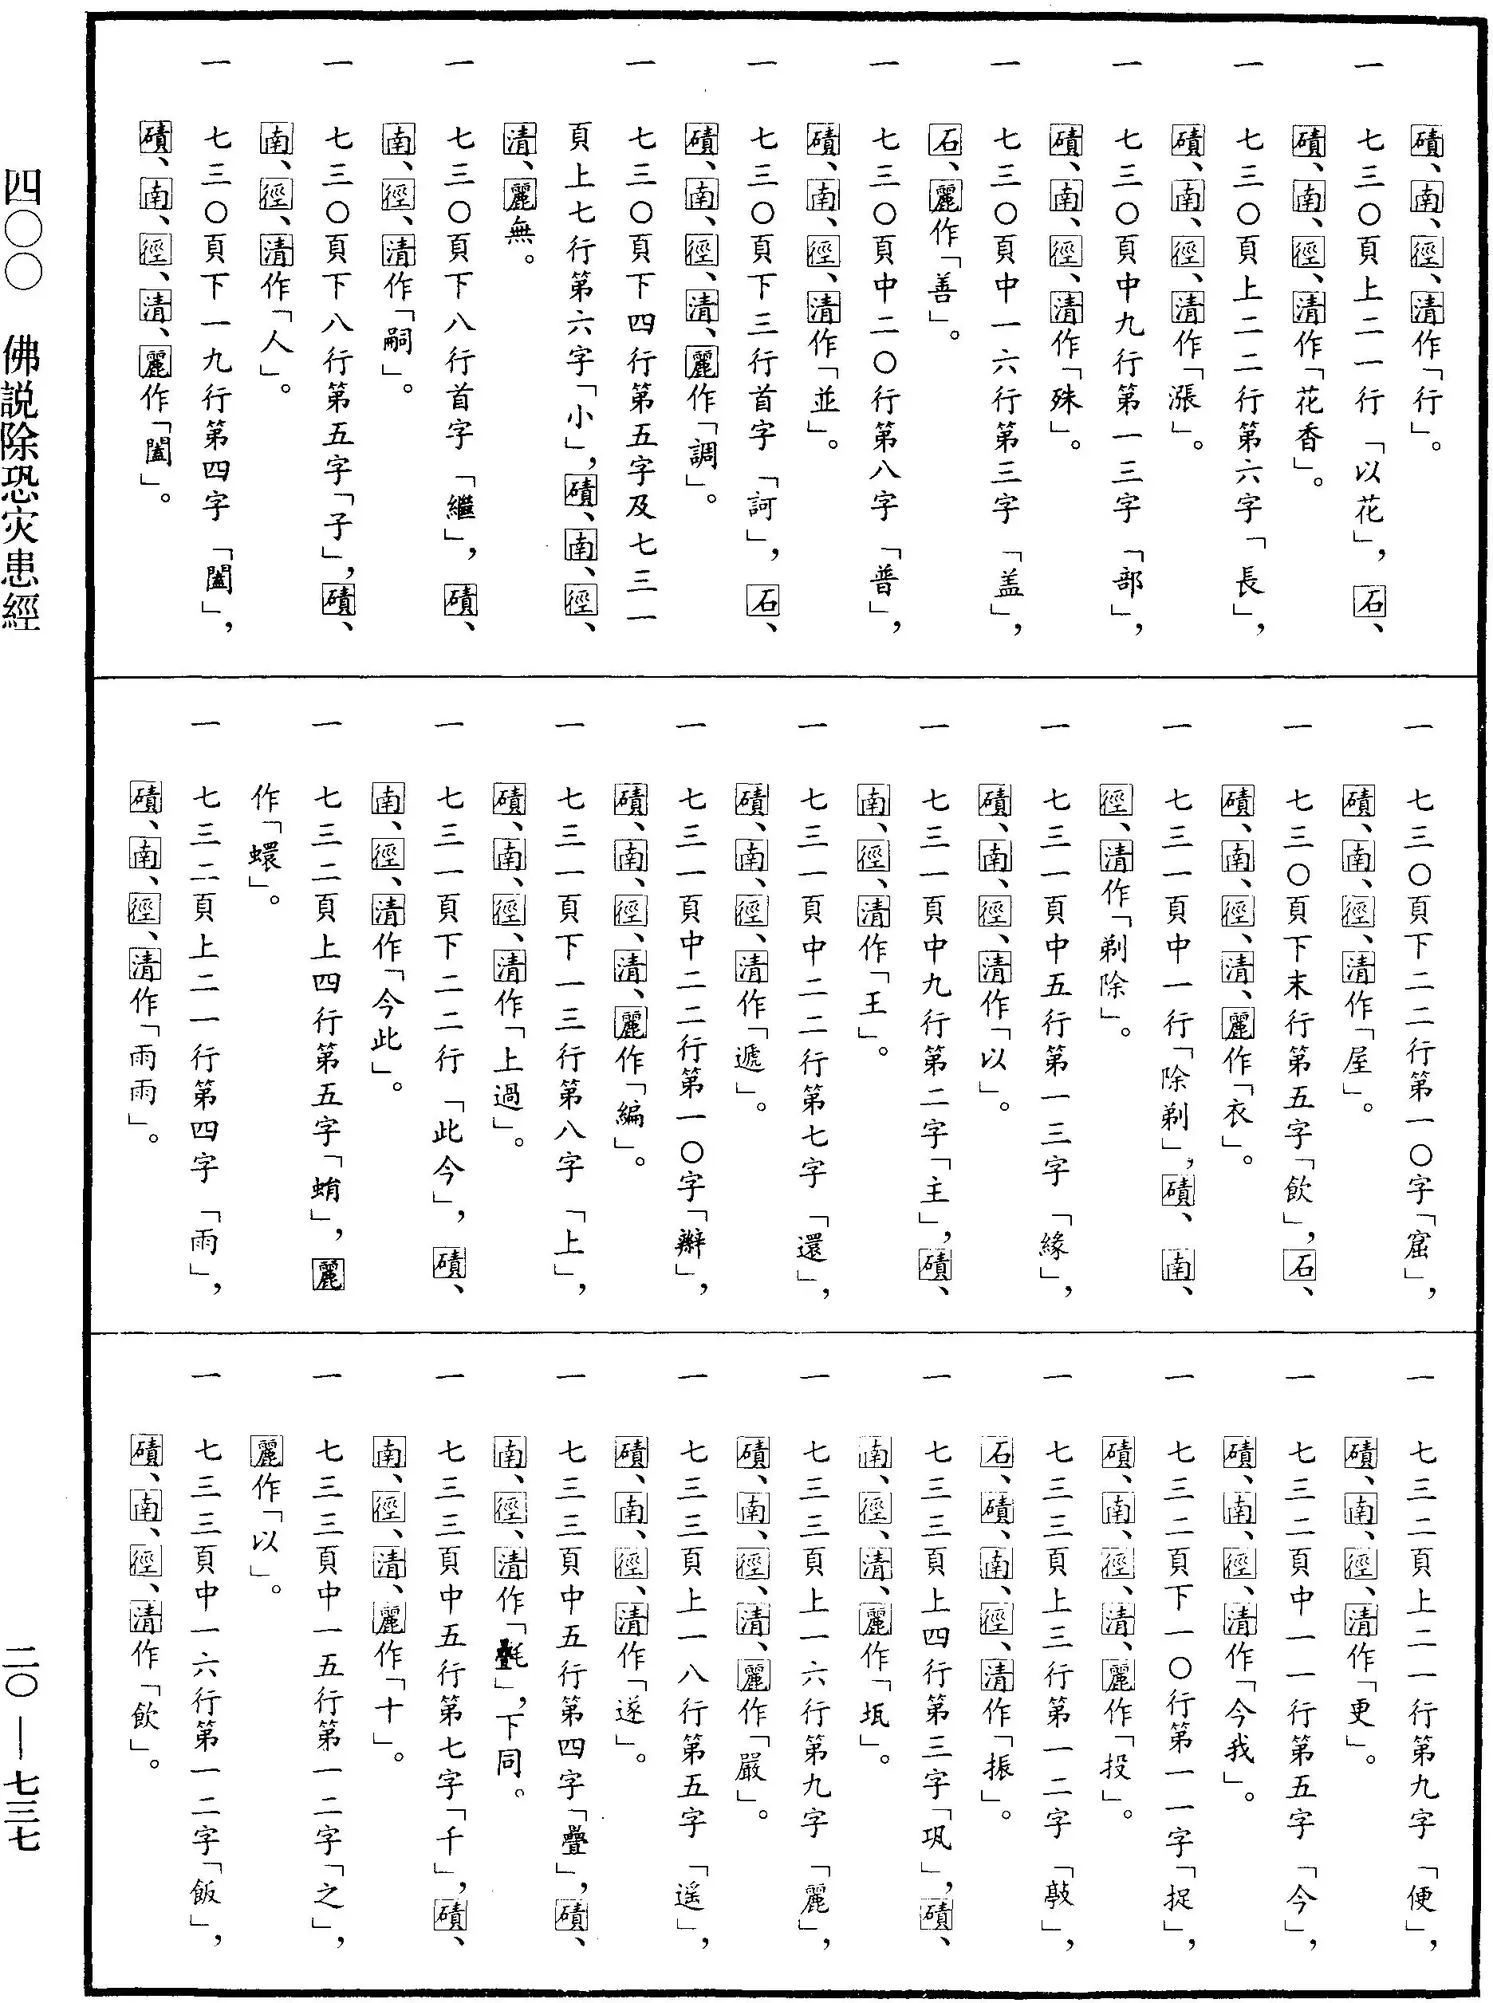 磧、南、徑、清作「行」。
一 七三〇頁上二一行「以花」，石、
磧、南、徑、清作「花香」。
一 七三〇頁上二二行第六字「長」，
磧、南、徑、清作「漲」。
一 七三〇頁中九行第一三字「部」，
磧、南、徑、清作「殊」。
一 七三〇頁中一六行第三字「盖」，
石、麗作「善」。
一 七三〇頁中二〇行第八字「普」，
磧、南、徑、清作「並」。
一 七三〇頁下三行首字「訶」，石、
磧、南、徑、清、麗作「調」。
一 七三〇頁下四行第五字及七三一
頁上七行第六字「小」，磧、南、徑、
清、麗無。
一 七三〇頁下八行首字「繼」，磧、
南、徑、清作「嗣」。
一 七三〇頁下八行第五字「子」，磧、
南、徑、清作「人」。
一 七三〇頁下一九行第四字「闔」，
磧、南、徑、清、麗作「闔」。
一 七三〇頁下二二行第一〇字「窟」，
磧、南、徑、清作「屋」。
一 七三〇頁下末行第五字「飲」，石、
磧、南、徑、清、麗作「衣」。
一 七三一頁中一行「除剃」，磧、南、
徑、清作「剃除」。
一 七三一頁中五行第一三字「緣」，
磧、南、徑、清作「以」。
一 七三一頁中九行第二字「主」，磧、
南、徑、清作「王」。
一 七三一頁中二二行第七字「還」，
磧、南、徑、清作「遞」。
一 七三一頁中二二行第一〇字「辮」，
磧、南、徑、清、麗作「編」。
一 七三一頁下一三行第八字「上」，
磧、南、徑、清作「上過」。
一 七三一頁下二二行「此今」，磧、
南、徑、清作「今此」。
一 七三二頁上四行第五字「蜎」，麗
作「蠉」。
一 七三二頁上二一行第四字「雨」，
磧、南、徑、清作「雨雨」。
一 七三二頁上二一行第九字「便」，
磧、南、徑、清作「更」。
一 七三二頁中一一行第五字「今」，
磧、南、徑、清作「今我」。
一 七三二頁下一〇行第一一字「捉」，
磧、南、徑、清、麗作「投」。
一 七三三頁上三行第一二字「敲」，
石、磧、南、徑、清作「振」。
一 七三三頁上四行第三字「巩」，磧、
南、徑、清、麗作「坻」。
一 七三三頁上一六行第九字「麗」，
磧、南、徑、清、麗作「嚴」。
一 七三三頁上一八行第五字「遥」，
磧、南、徑、清作「遂」。
一 七三三頁中五行第四字「疊」，磧、
南、徑、清作「氎」，下同。
一 七三三頁中五行第七字「千」，磧、
南、徑、清、麗作「十」。
一 七三三頁中一五行第一二字「之」，
麗作「以」。
一 七三三頁中一六行第一二字「飯」，
磧、南、徑、清作「飲」。
四〇〇 佛説除恐灾患經
二〇—七三七